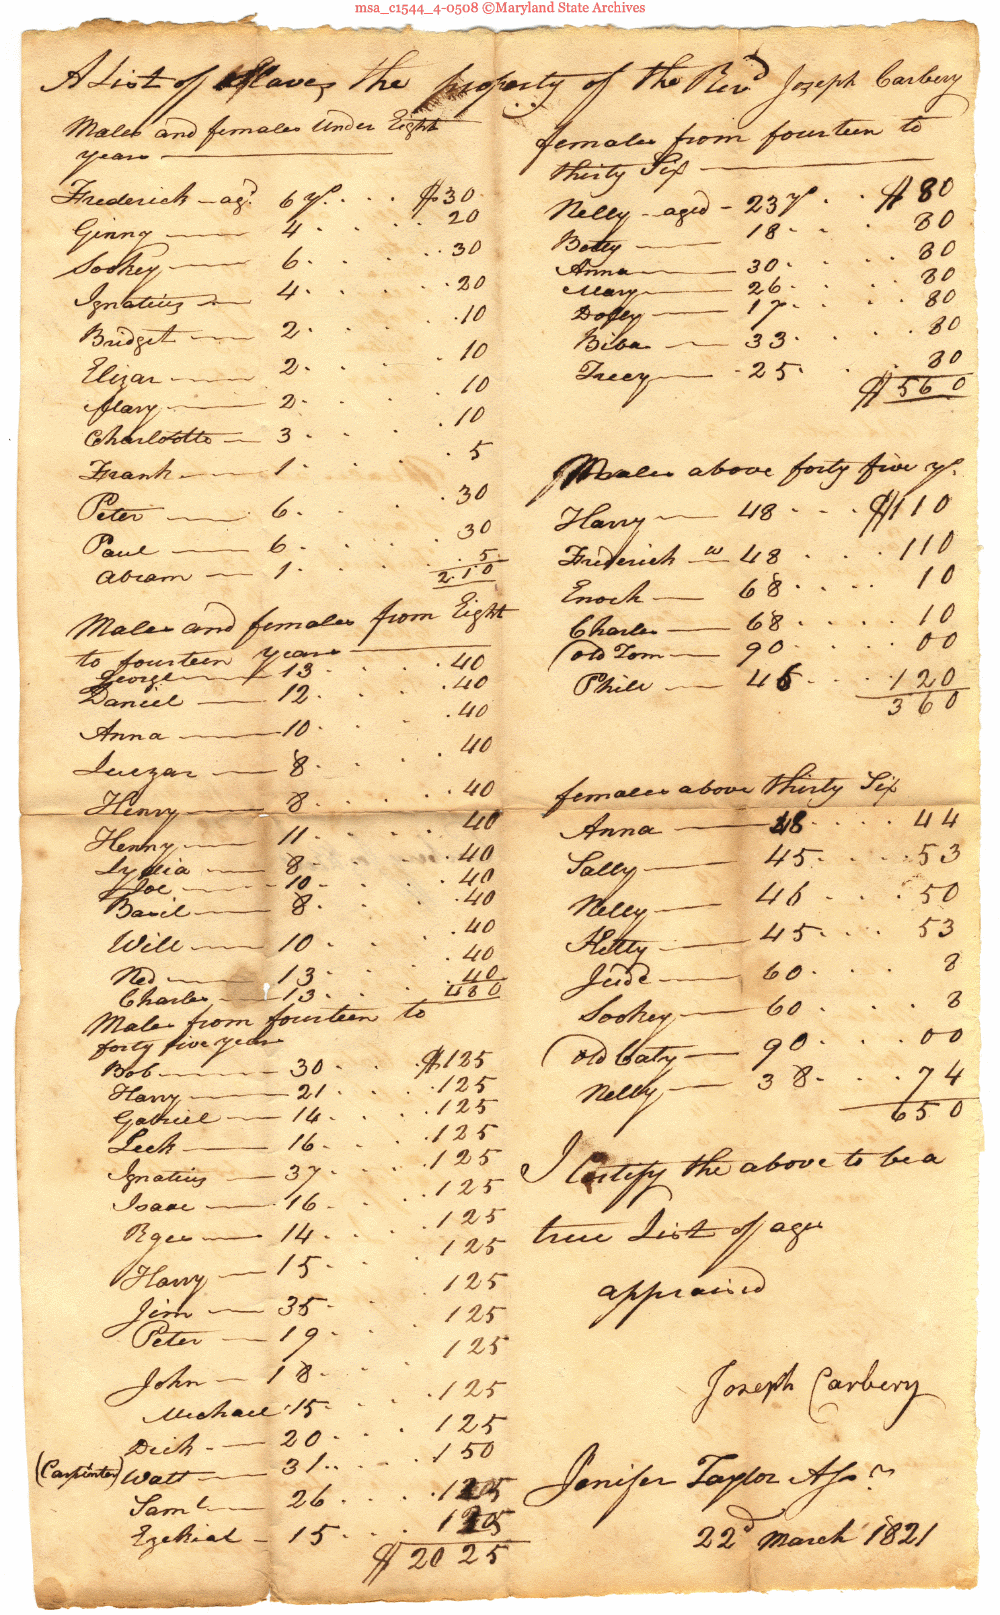 msa_c1544_4-0508 ©Maryland State Archives
A List of Slaves the property of the Revd Joseph Carbery
Males and females Under Eight
years
Frederick - agd. 6 yr. $30
Ginny 4 20
Sookey 6 30
Ignatius 4 20
Bridget 2 10
Elizar 2 10
Mary 2 10
Charlotte 3 10
Frank 1 5
Peter 6 30
Paul 6 30
Abram 1 5
210
Males and females from Eight
to fourteen years
George 13 40
Daniel 12 40
Anna 10 40
Luezar 8 40
Henry 8 40
Henny 11 40
Lydia 8 40
Joe 10 40
Basil 8 40
Will 10 40
Ned 13 40
Charles 13 40
480
Males from fourteen to
forty five years
Bob 30 $125
Harry 21 125
Gabriel 14 125
Leck 16 125
Ignatius 37 125
Isaac 16 125
14 125
Harry 15 125
Jim 35 125
Peter 19 125
John 18 125
Michael 15 125
Dick 20 125
(Carpinter) Watt 31 150
Saml 26 125
Ezekial 15 125
$2025
females from fourteen to
thirty Six
Nelly - aged - 23 yr $80
Betty 18 80
Anna 30 80
Mary 26 80
Dolly 17 80
Biba 33 80
Treey 25 80
$560
Males above forty five yr.
Harry 48 $110
Frederick 48 110
Enoch 68 10
Charles 68 10
Old Tom 90 00
Phill 45 120
360
females above thirty Six
Anna 48 44
Sally 45 53
Nelly 46 50
Kitty 45 53
Jude 60 8
Sookey 60 8
Old Caty 90 00
Nelly 38 74
650
I Certify the above to be a
true List of ages
appraised
Joseph Carbery
Jenifer Taylor Assr
22d March 1821